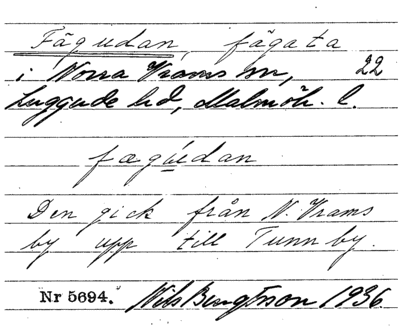 Fägudan, fägata
i Norra Vrams sn, 22
Luggude hd, Malmöh. l.
fægúdan
Den gick från N. Vrams
by upp till Tunnby.
Nr 5694. Nils Bengtsson 1936.